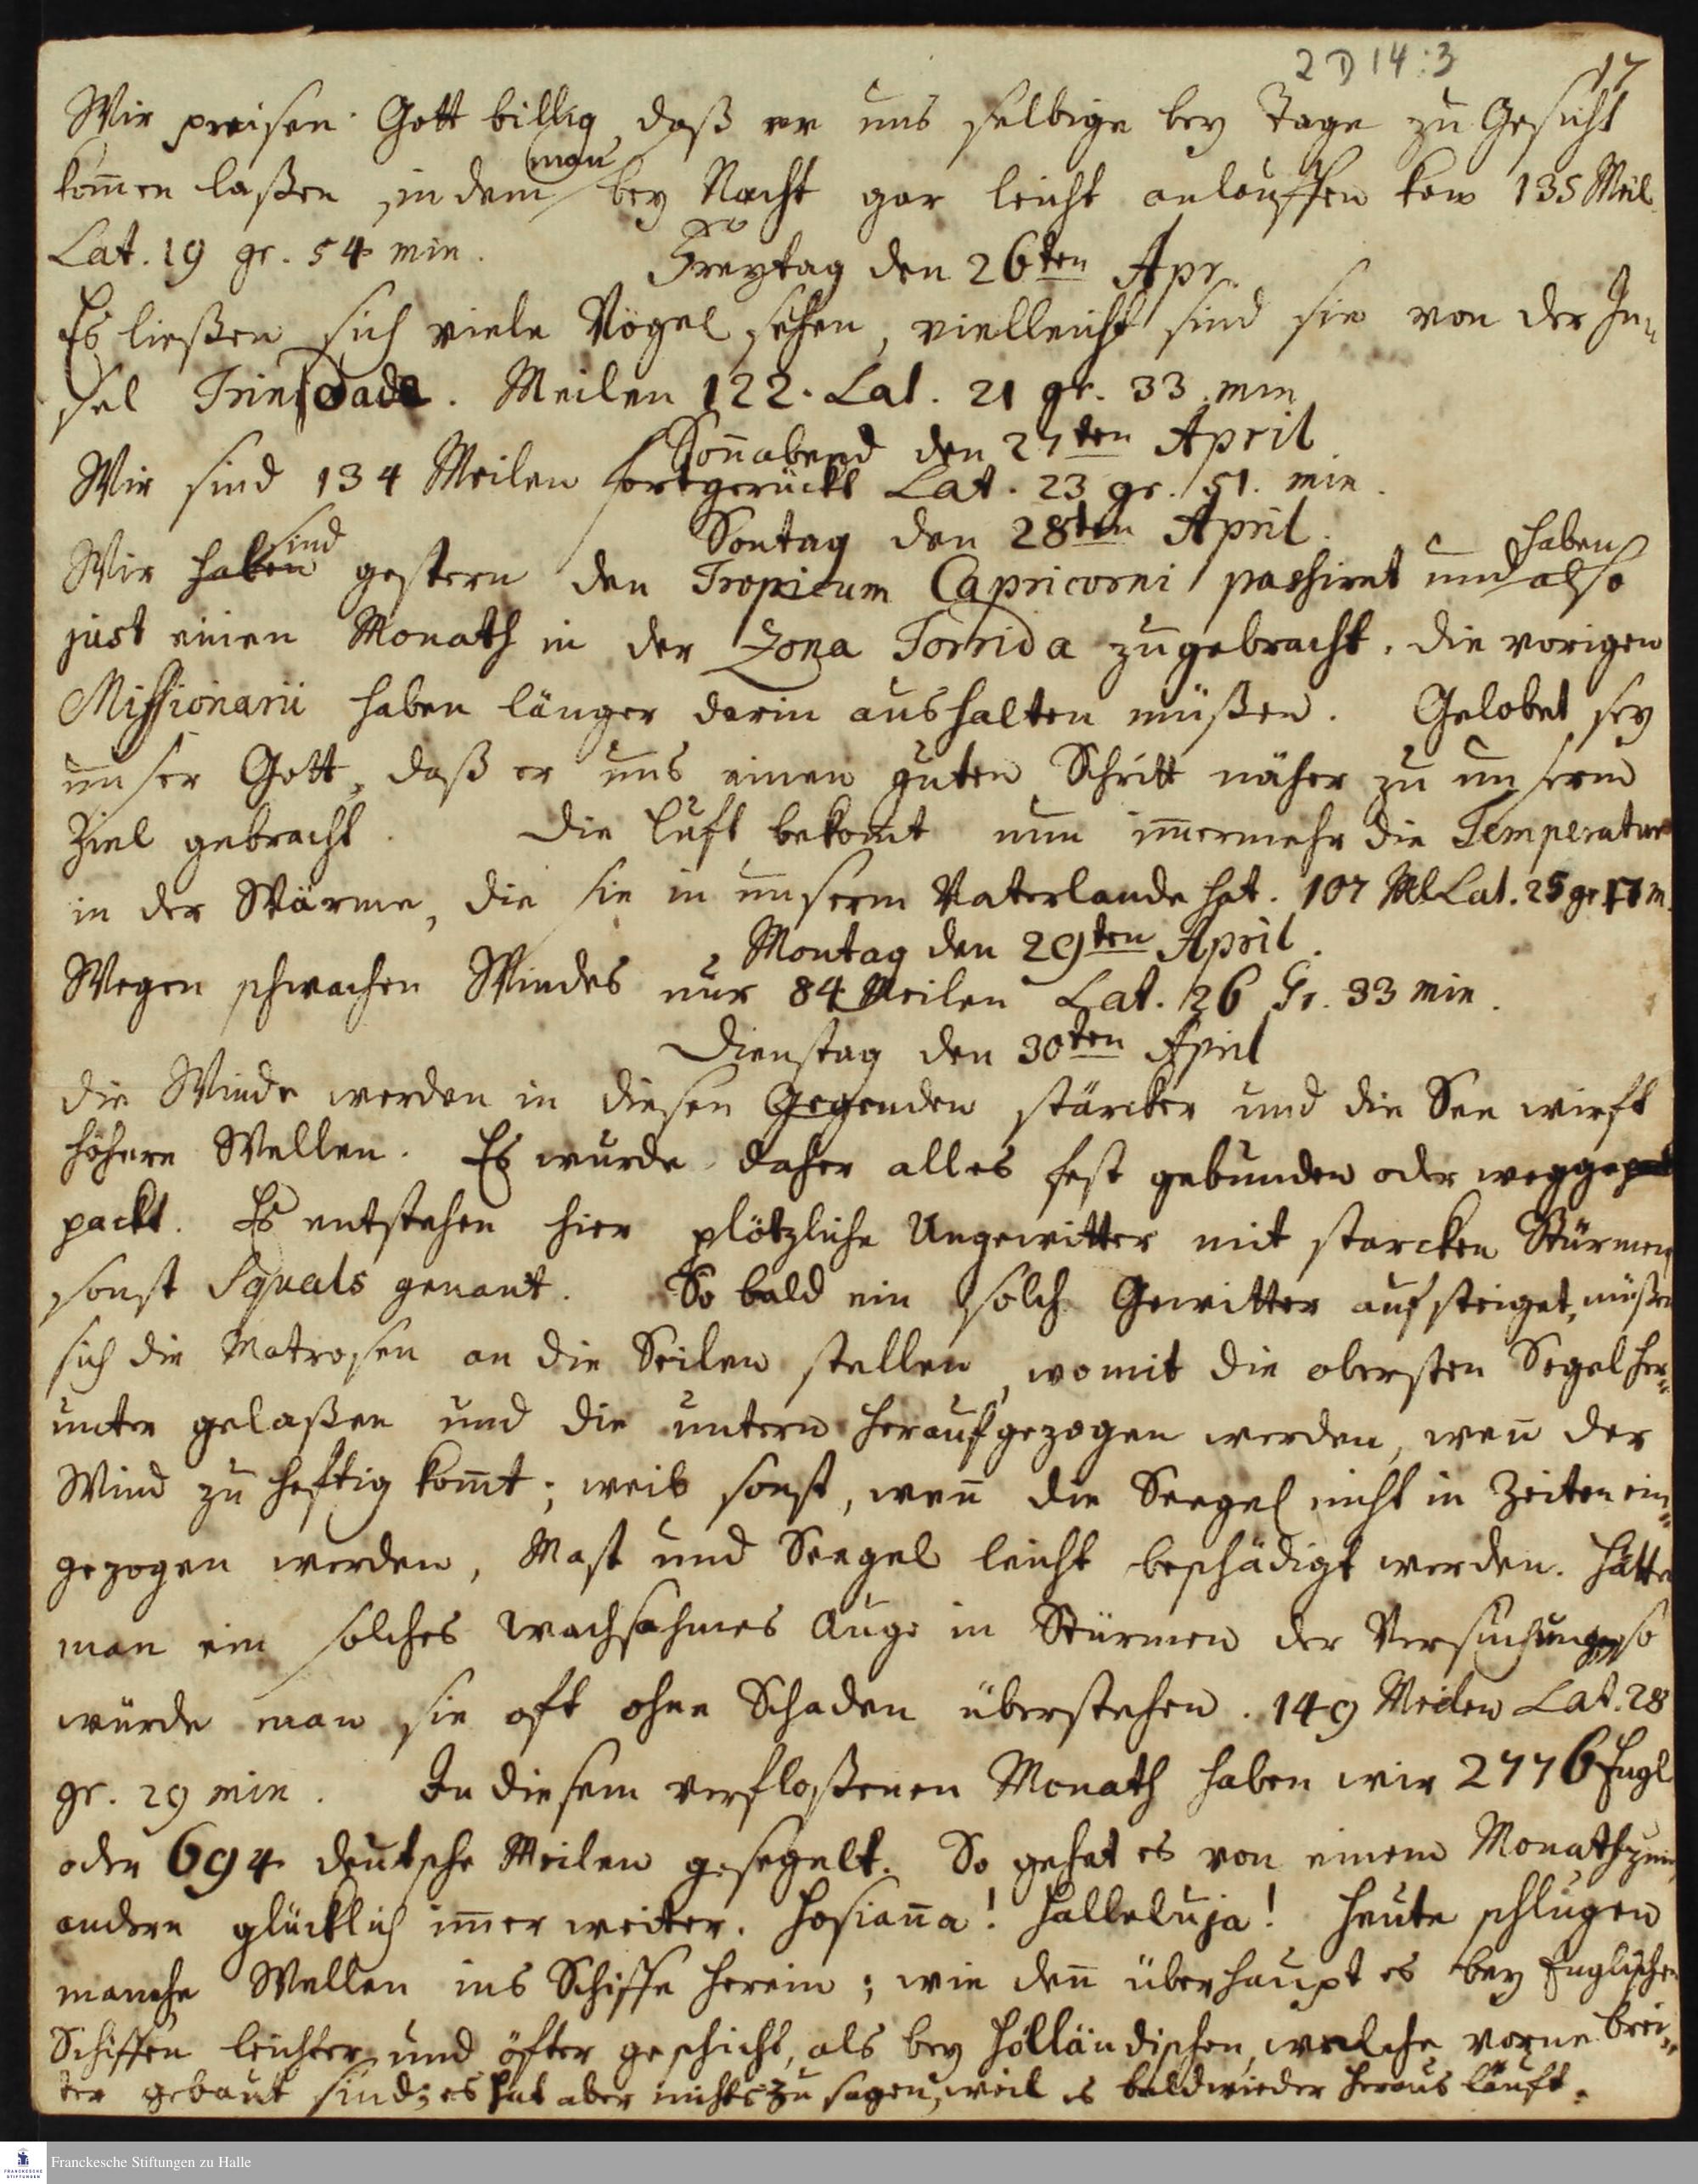 2 D 14:3
17
Wir preisen Gott billig, daß er uns selbige bey Tage zu Gesicht
kom̅en laßen, indem man bey Nacht gar leicht anlauffen kan 135 Meil.
Lat. 19 gr. 54 min.
Freytag den 26ten Apr.
Es ließen sich viele Vögel sehen, vielleicht sind sie von der In-
sel Trinidada. Meilen 122. Lat. 21 gr. 33 min
Son̅abend den 27ten April
Wir sind 134 Meilen fortgerückt Lat. 23 gr. 51. min.
Sontag den 28ten April.
Wir haben sind gestern den Tropicum Capricorni passiret und haben also
just einen Monath in der Zona Torrida zugebracht. Die vorigen
Missionarii haben länger darin aushalten müßen. Gelobet sey
unser Gott, daß er uns einen guten Schritt näher zu unserm
Ziel gebracht. Die Luft bekom̅t nun im̅ermehr die Temperatur
in der Wärme, die sie in unserm Vaterlande hat. 107 Ml. Lat. 25 gr.
Montag den 29ten April.
Wegen schwachen Windes nur 84 Meilen Lat. 26 Gr. 33 min.
Dienstag den 30ten April
Die Winde werden in diesen Gegenden stärcker und die See wirft
höhere Wellen. Es wurde daher alles fest gebunden oder wegge
packt. Es entstehen hier plötzliche Ungewitter mit starcken Stürmen,
sonst Squals genant. So bald ein solch Gewitter aufsteiget, müßen
sich die Matrosen an die Seilen stellen, womit die obersten Segel her-
unter gelaßen und die untern heraufgezogen werden, wen̅ der
Wind zu heftig kom̅t; weil sonst, wen̅ die Seegel nicht in Zeiten ein-
gezogen werden, Mast und Seegel leicht beschädigt werden. Hätte
man ein solches wachsahmes Auge in Stürmen der Versuchungen, so
würde man sie oft ohne Schaden überstehen. 149 Meilen Lat. 28
gr. 29 min. In diesem verfloßenen Monath haben wir 2776 Engl.
oder 694 deutsche Meilen gesegelt. So gehet es von einem Monath zum
andern glücklich im̅er weiter. Hosian̅a! Halleluja! Heute schlugen
manche Wellen ins Schiffe herein; wie den̅ überhaupt es bey Englischen
Schiffen leichter und öfter geschicht, als bey Holländischen, welche vorne brei-
ter gebaut sind; es hat aber nichts zu sagen, weil es bald wieder heraus läuft.
FRANCKESCHE
STIFTUNGEN
Franckesche Stiftungen zu Halle